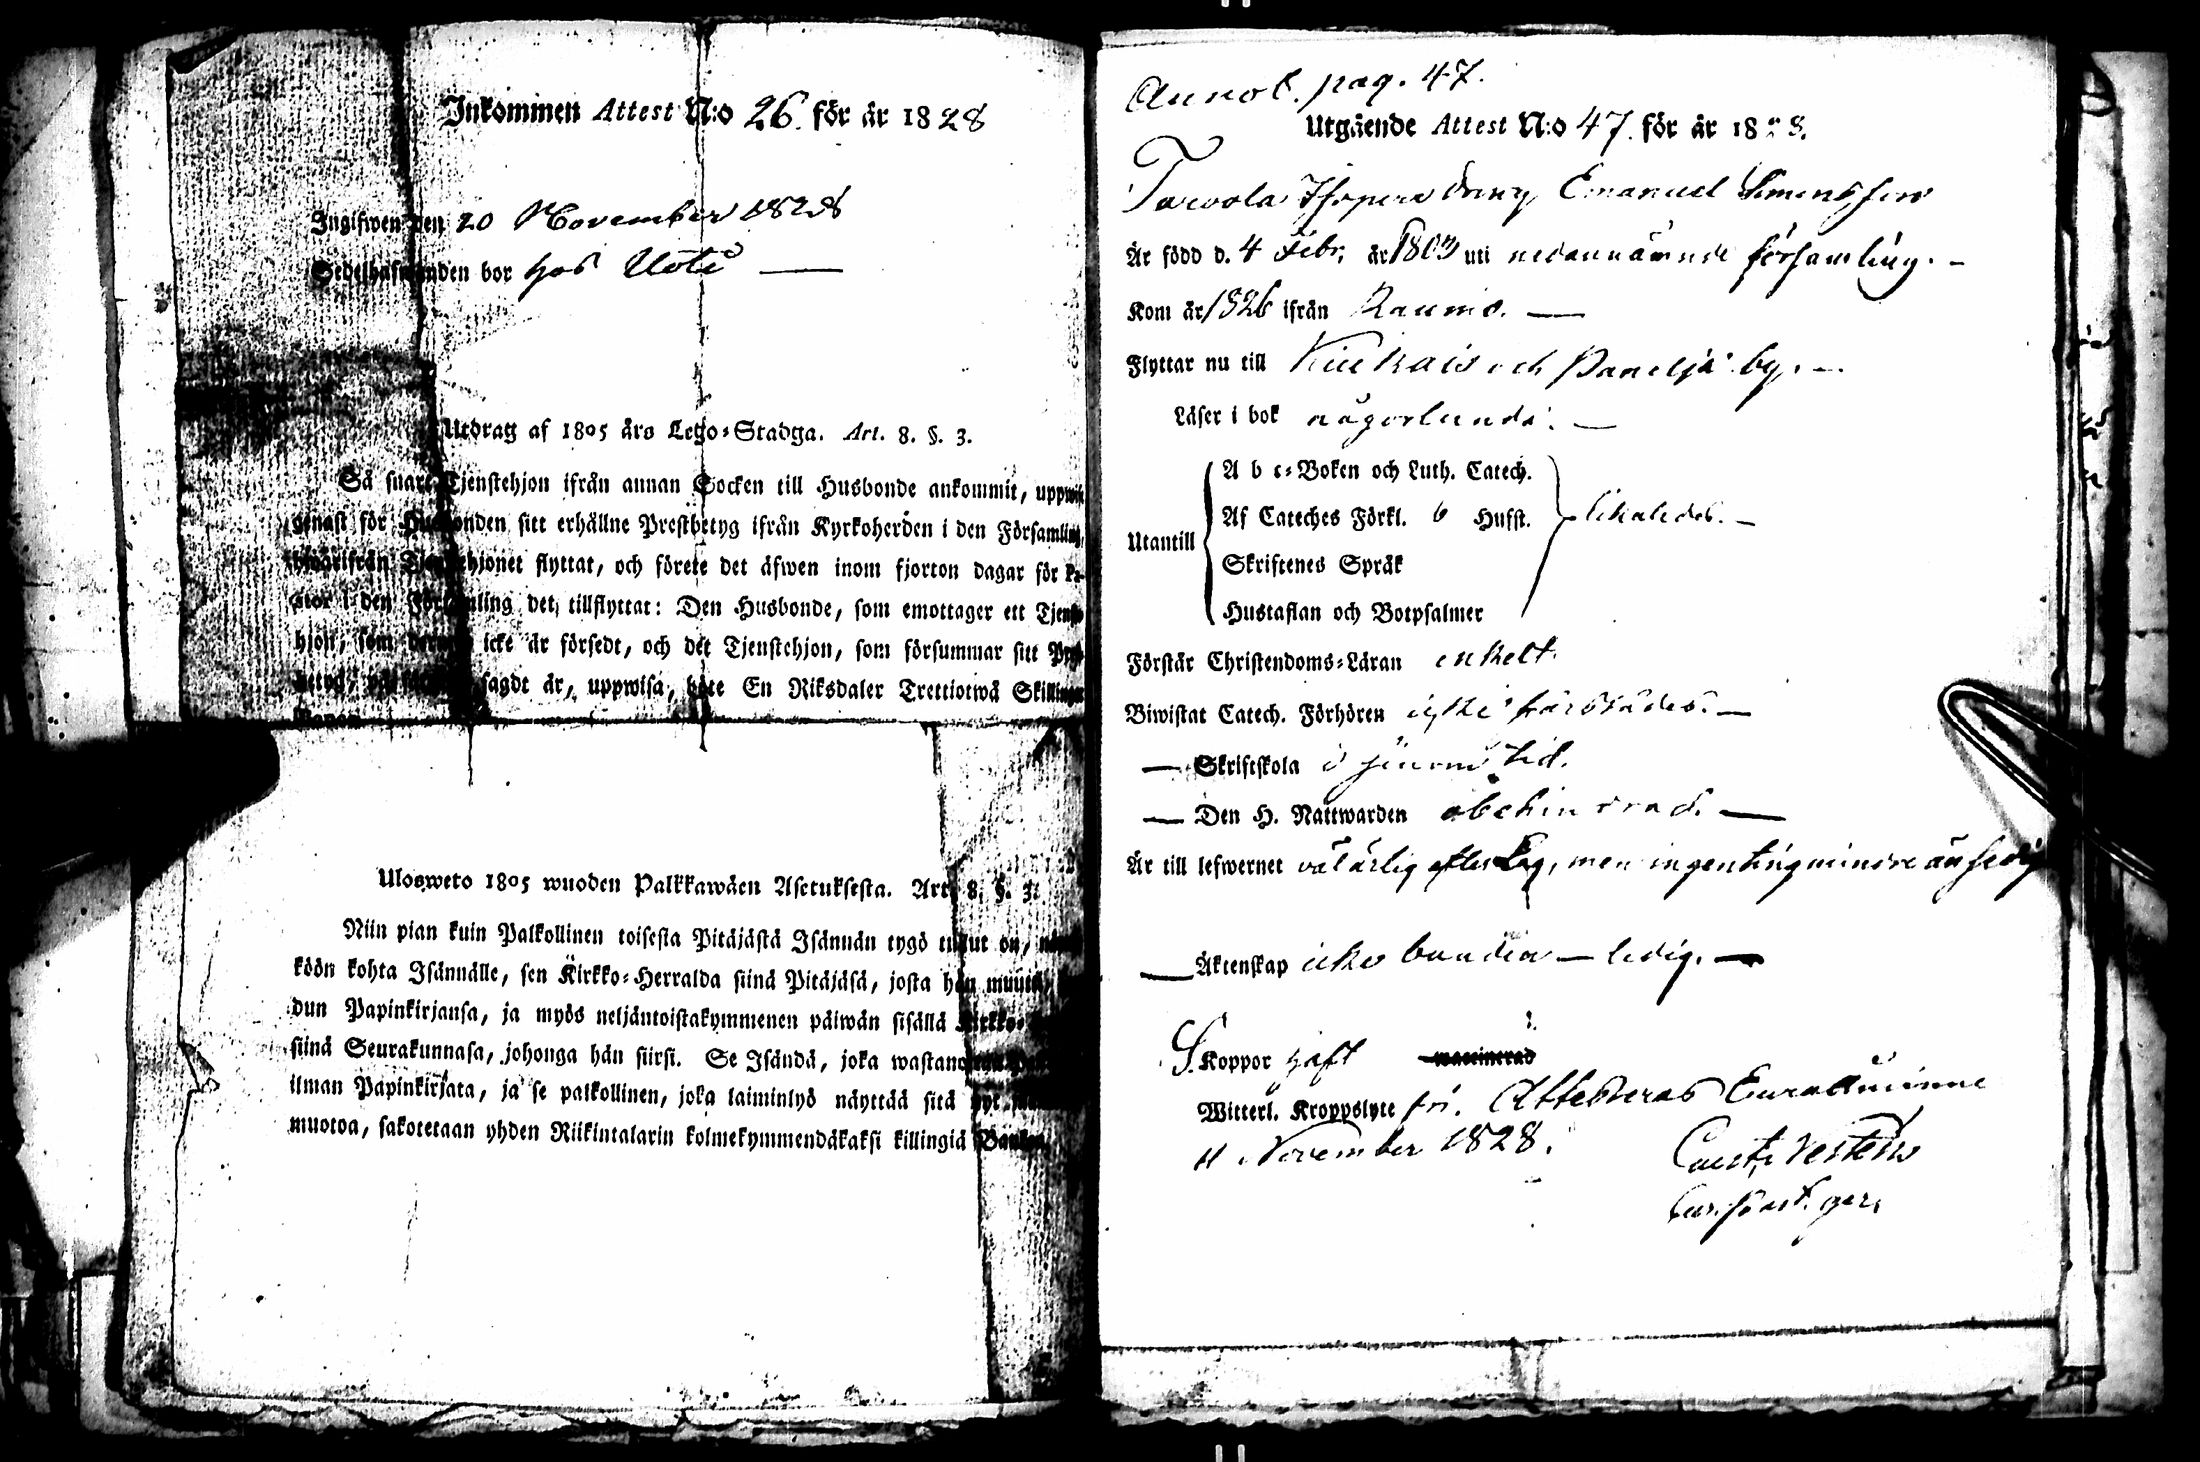 Inkommen Attest N:o 26. för år 1828
Ingifwen den 20 November 1828
Sedelhafwanden bor hos Uoti —
Utdrag af 1805 års Lego-Stadga. Art. 8. §. 3.
Så snart Tjenstehjon ifrån annan Socken till Husbonde ankommit,
genast för Husbonden sitt erhållne Prestbetyg ifrån Kyrkoherden i den Församling,
hwarifrån Tjenstehjonet flyttat, och förete det äfwen inom fjorton dagar för
i den Församling det tillflyttat: Den Husbonde, som emottager ett
hjon, som icke är försedt, och det Tjenstehjon, som försummar sitt
sagdt är, uppwisa, böte En Riksdaler Trettiotwå Skillingar
Banco.
Ulosweto 1805 wuoden Palkkawäen Asetuksesta. Art. 8. §. 3.
Niin pian kuin Palkollinen toisesta Pitäjästä Isännän tygö tullut on,
köön kohta Isännälle, sen Kirkko-Herralda siinä Pitäjäsä, josta hän
dun Papinkirjansa, ja myös neljäntoistakymmenen päiwän sisällä Kirkko-
siinä Seurakunnasa, johonga hän siirsi. Se Isändä, joka
ilman Papinkirjata, ja se palkollinen, joka laiminlyö näyttää sitä
muotoa, sakotetaan yhden Riikintalarin kolmekymmendäkaksi killingiä Bankosa.
Annot. pag. 47.
Utgående Attest N:o 47. för år 1828.
dräng Emanuel Simonsson
Är född d. 4 Febr. år 1803 uti nedannämnde församling. –
Kom år 1826 ifrån Raumo. —
Flyttar nu till Kiukais och Panelia by. –
Läser i bok någorlunda. —
Utantill
A b c-Boken och Luth. Catech.
Af Cateches Förkl. 6 Hufst.
Skriftenes Språk
Hustaflan och Botpsalmer
likaledes. –
Förstår Christendoms-Läran enkelt
Biwistat Catech. Förhören icke härstädes. —
— Skriftskola i sinom tid.
— Den H. Nattwarden obehindrad. —
Är till lefwernet wäl ärlig efter Lag, men ingenting mindre än sedig
— Äktenskap icke bunden — ledig. —
S. Koppor haft
Witterl. Kroppslyte fri. Attesteras Euraåminne
11 November 1828.